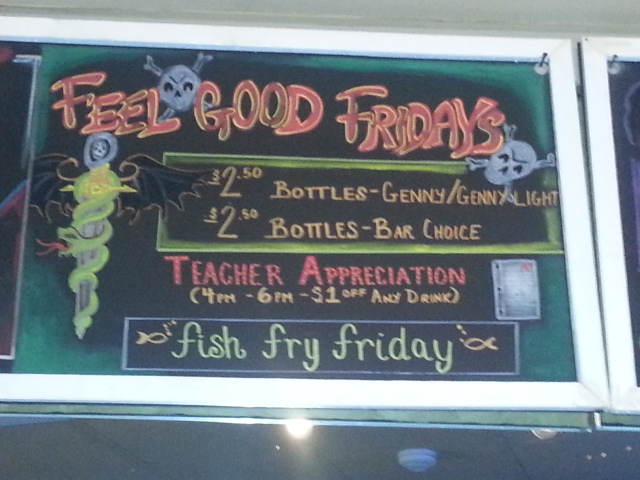 FEEL GOOD FRIDAYS
$2.50 BOTTLES-GENNY/GENNY LIGHT
$2.50 BOTTLES-BAR CHOICE
TEACHER APPRECIATION
(4PM - 6PM - $1 OFF ANY DRINK)
fish fry friday